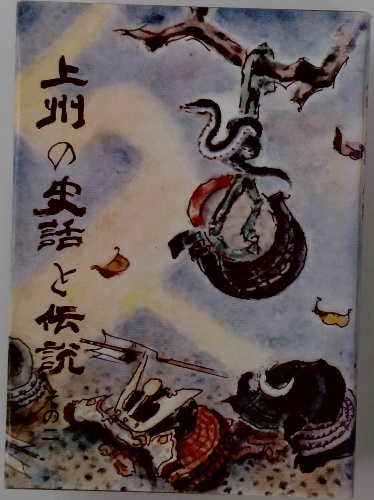 上州の史話と伝説
の一